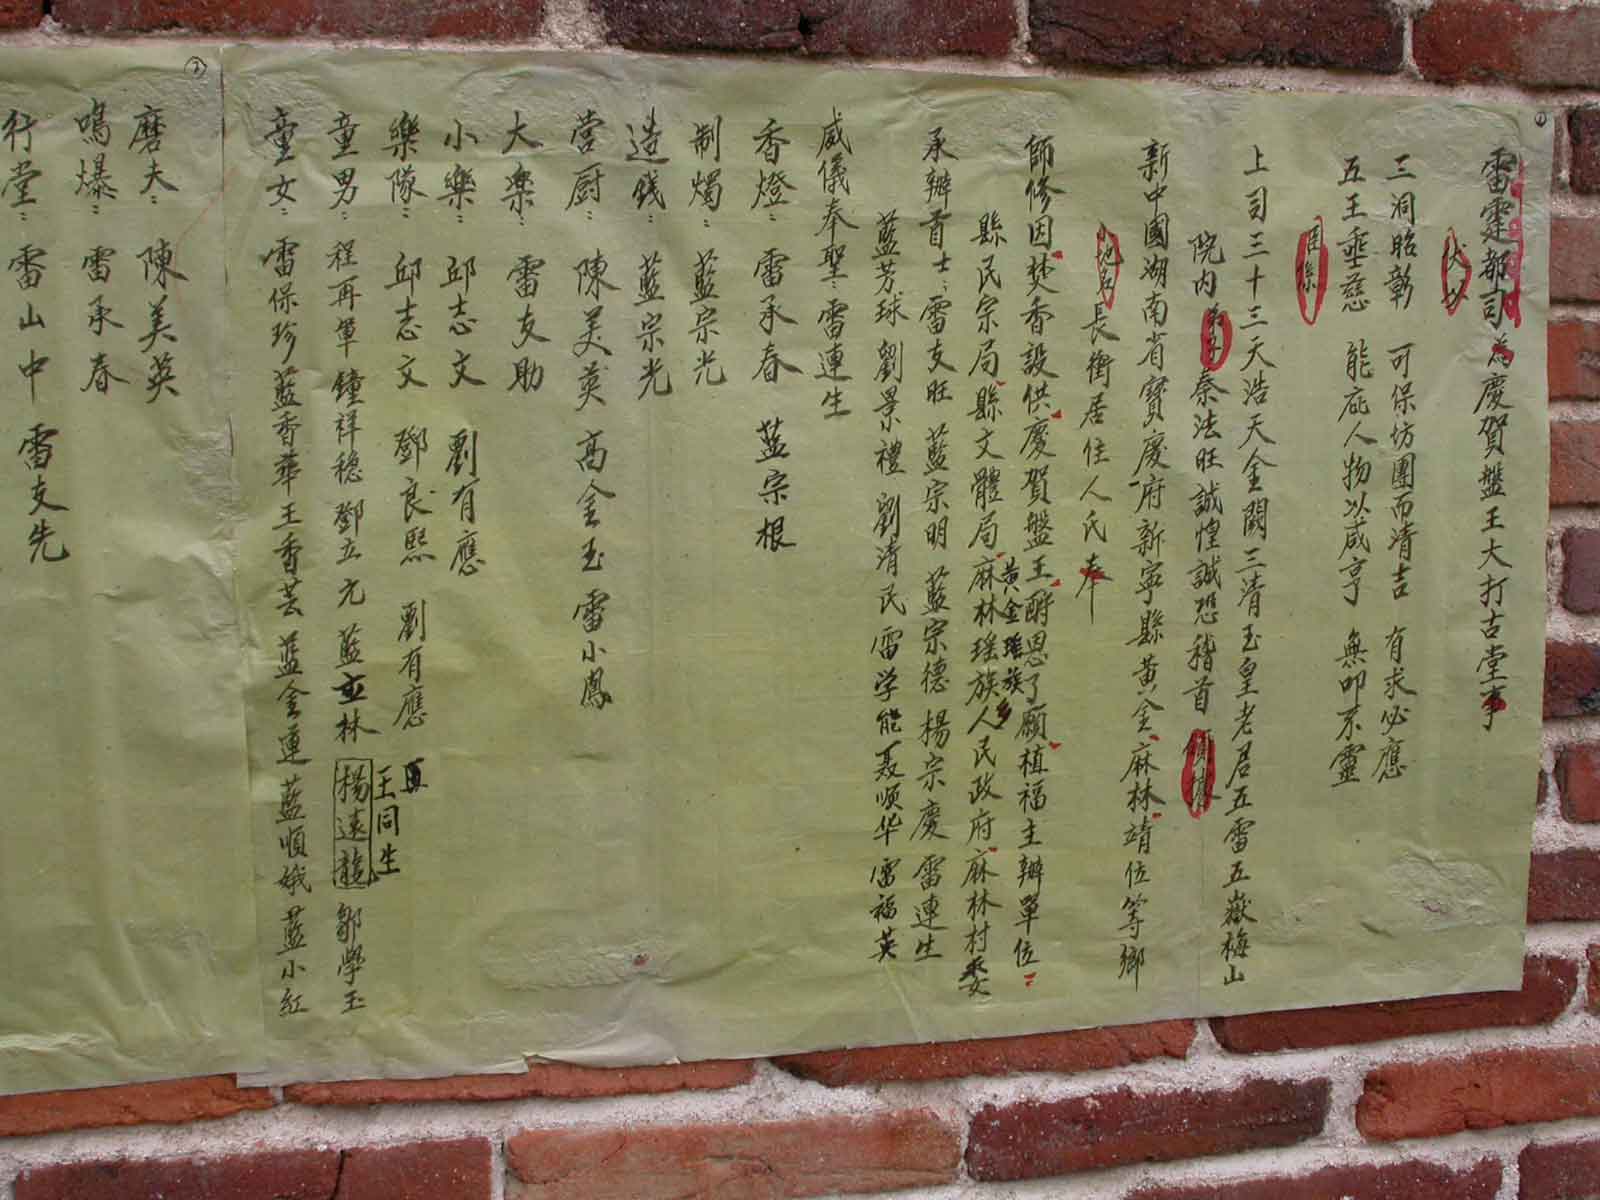 雷霆都司為慶賀盤王大打古堂事
伏以
三洞昭彰 可保坊團而清吉 有求必應
五王垂慈 能庇人物以咸亨 無叩不靈
上司三十三天浩天金闕三清玉皇老居五雷五嶽梅山
院内 秦法旺誠惶誠恐稽首
新中國湖南省寶慶府新寧縣黃金麻林靖位等鄉
小地名長衝居住人氏奉
師修因焚香設供慶賀盤王酧恩了願植福主辦單位
黃金瑤族乡
縣民宗局縣文體局麻林瑶族人民政府麻林村委
承辦首士：雷支旺 藍宗明 藍宗德 楊宗慶 雷連生
藍芳球 劉景禮 劉清民 雷学能 聂顺华 雷福英
威儀奉聖：雷連生
香燈：雷承春 藍宗根
制燭：藍宗光
造錢：藍宗光
営厨：陳美英 高金玉 雷小鳳
大樂：雷支助
小樂：邱志文 劉有應
樂隊：邱志文 鄧良熙 劉有應
王同生
童男：程再軍 鐘祥穏 鄧立元 藍立林 楊遠龍 鄒學玉
童女：雷保珍 藍香華 王香芸 蓝金蓮 藍順娥 藍小紅
②
磨夫：陳美英
鳴爆：雷承春
行堂：雷山中 雷支先